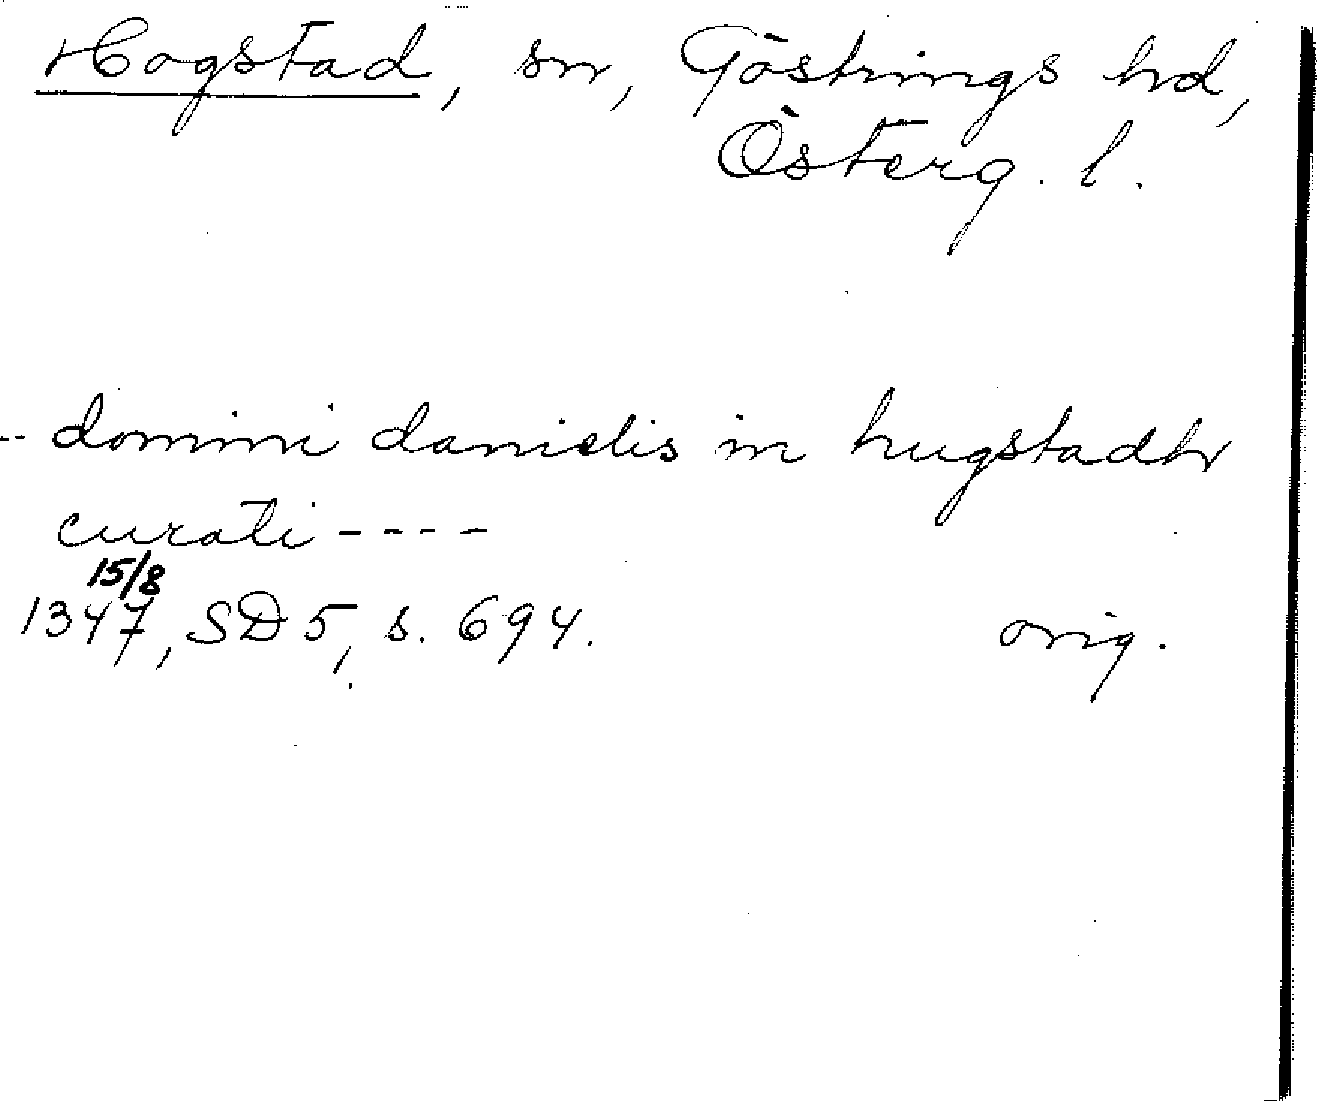 Hogstad, sn, Göstrings hd,
Österg. l.
-- domini danielis in hugstadh
curati ----
15/8
1347, SD 5, s. 694. orig.